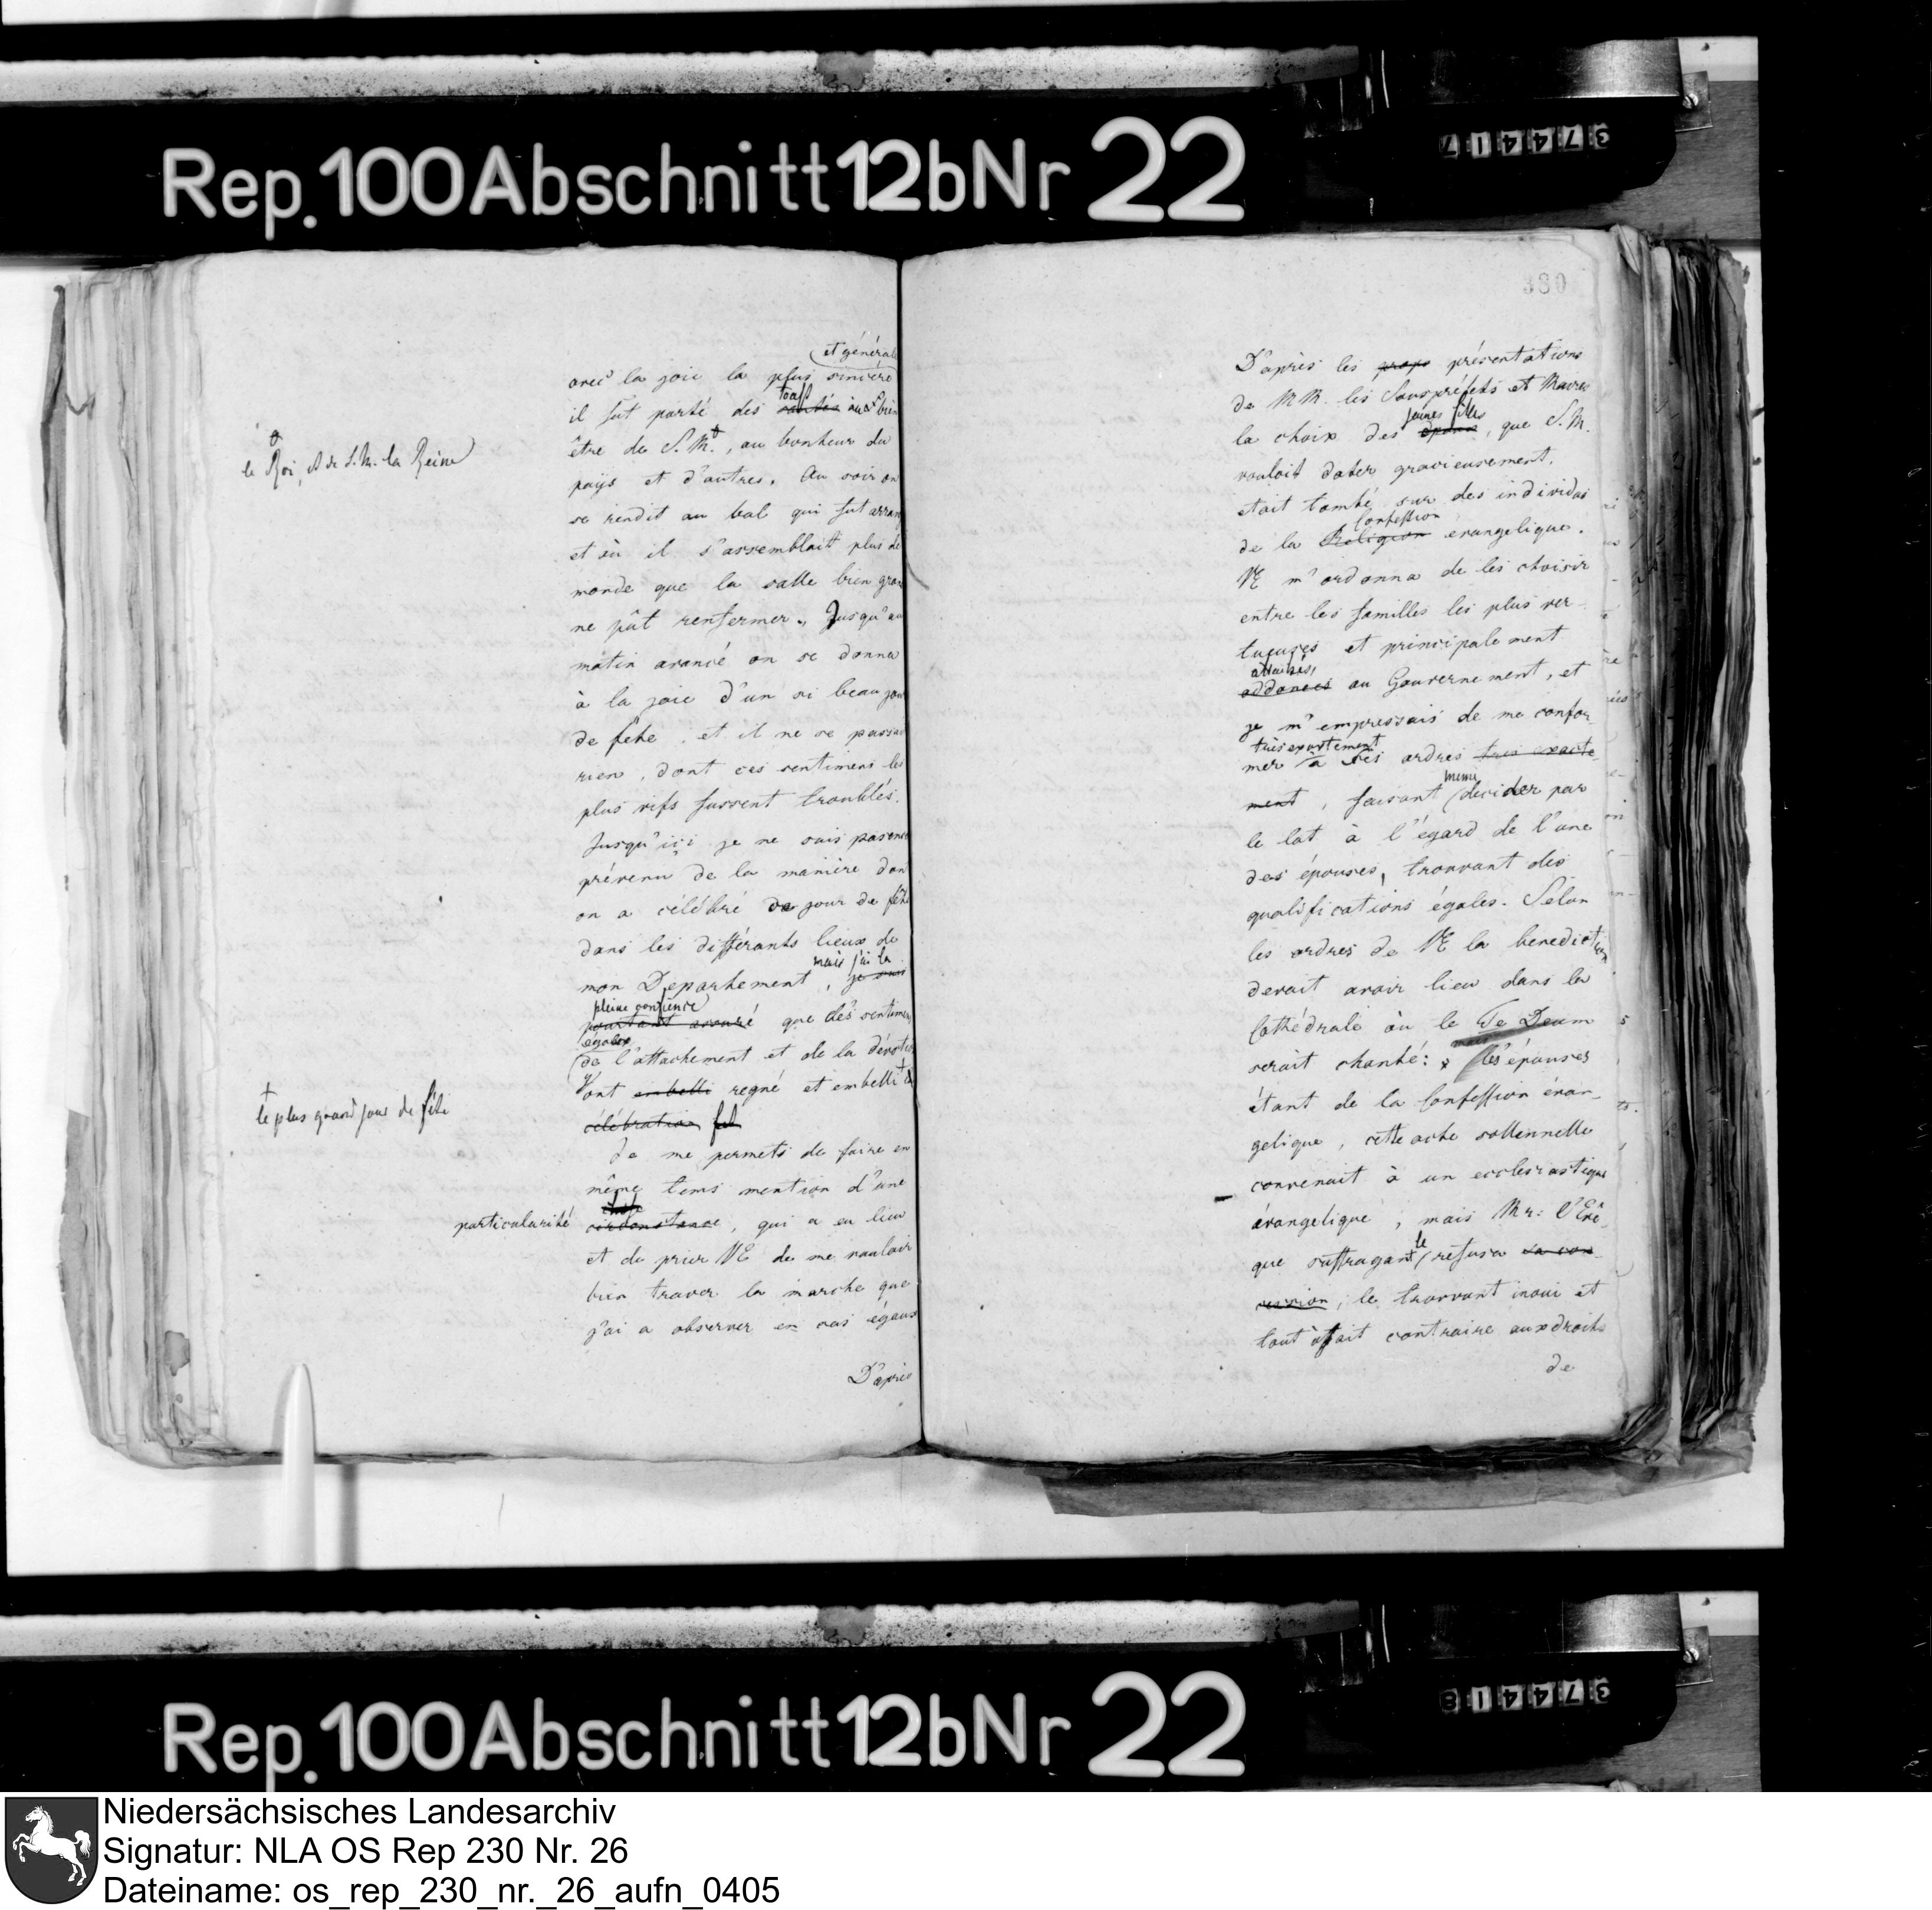 Rep. 100 Abschnitt 12b Nr 22
374417
et générale
avec la joie la plus sincère
toast
il fut porté des santés au bien
être de S. M., au bonheur du
le Roi, et de S. M. la Reine
païs et d'autres. Au soir on
se rendit au bal qui fut arran
et où il s'assemblait plus de
monde que la salle bien gran
ne pût renfermer. Jusqu'au
matin avancé on se donna
à la joie d'un si beau jour
de fete, et il ne se passa
rien, dont ces sentimens les
plus vifs fussent troublés.
Jusqu'ici je ne suis pas enc
prévenu de la manière don
on a célébré ce jour de fête
dans les différants lieux de
mais j'ai la
mon Departement, je suis
pleine confience
pourtant assuré que des sentimen
egales
de l'attachement et de la dévotio
Vont embelli regné et embelli
le plus grand jour de fête
célébration
Je me permets de faire en
même tems mention d'une
particularité
circonstance, qui a eu lieu
et de prier VE de me vouloir
bien tracer la marche que
j'ai a observer en cas égaux
D'après
380
D'après les props présentations
de MM. les Souspréfets et Maires
jeunes filles
la choix des épouses, que S. M.
vouloit doter gracieusement,
etait tombé sur des individus
Confession
de la Religion evangelique.
VE m'ordonna de les choisir
entre les familles les plus ver-
tueuses et principalement
attachés,
addonees au Gouvernement, et
je m'empressais de me confor-
très exactement
mer à ses ordres tres exacte
meme
ment, faisant decider par
le lot à l'égard de l'une
des épouses, trouvant des
qualifications égales. Selon
les ordres de VE la benediction
devait avoir lieu dans la
Cathédrale où le Te Deum
mais
serait chanté: les épouses
étant de la Confession évan-
gelique, cette acte sollennelle
convenait à un ecclesiastique
évangelique, mais Mr: l'Evê-
le
que suffragant refusa sa con-
cession, le trouvant inoui et
tout à fait contraire aux droits
de
Rep. 100 Abschnitt 12b Nr 22
374418
Niedersächsisches Landesarchiv
Signatur: NLA OS Rep 230 Nr. 26
Dateiname: os_rep_230_nr._26_aufn_0405